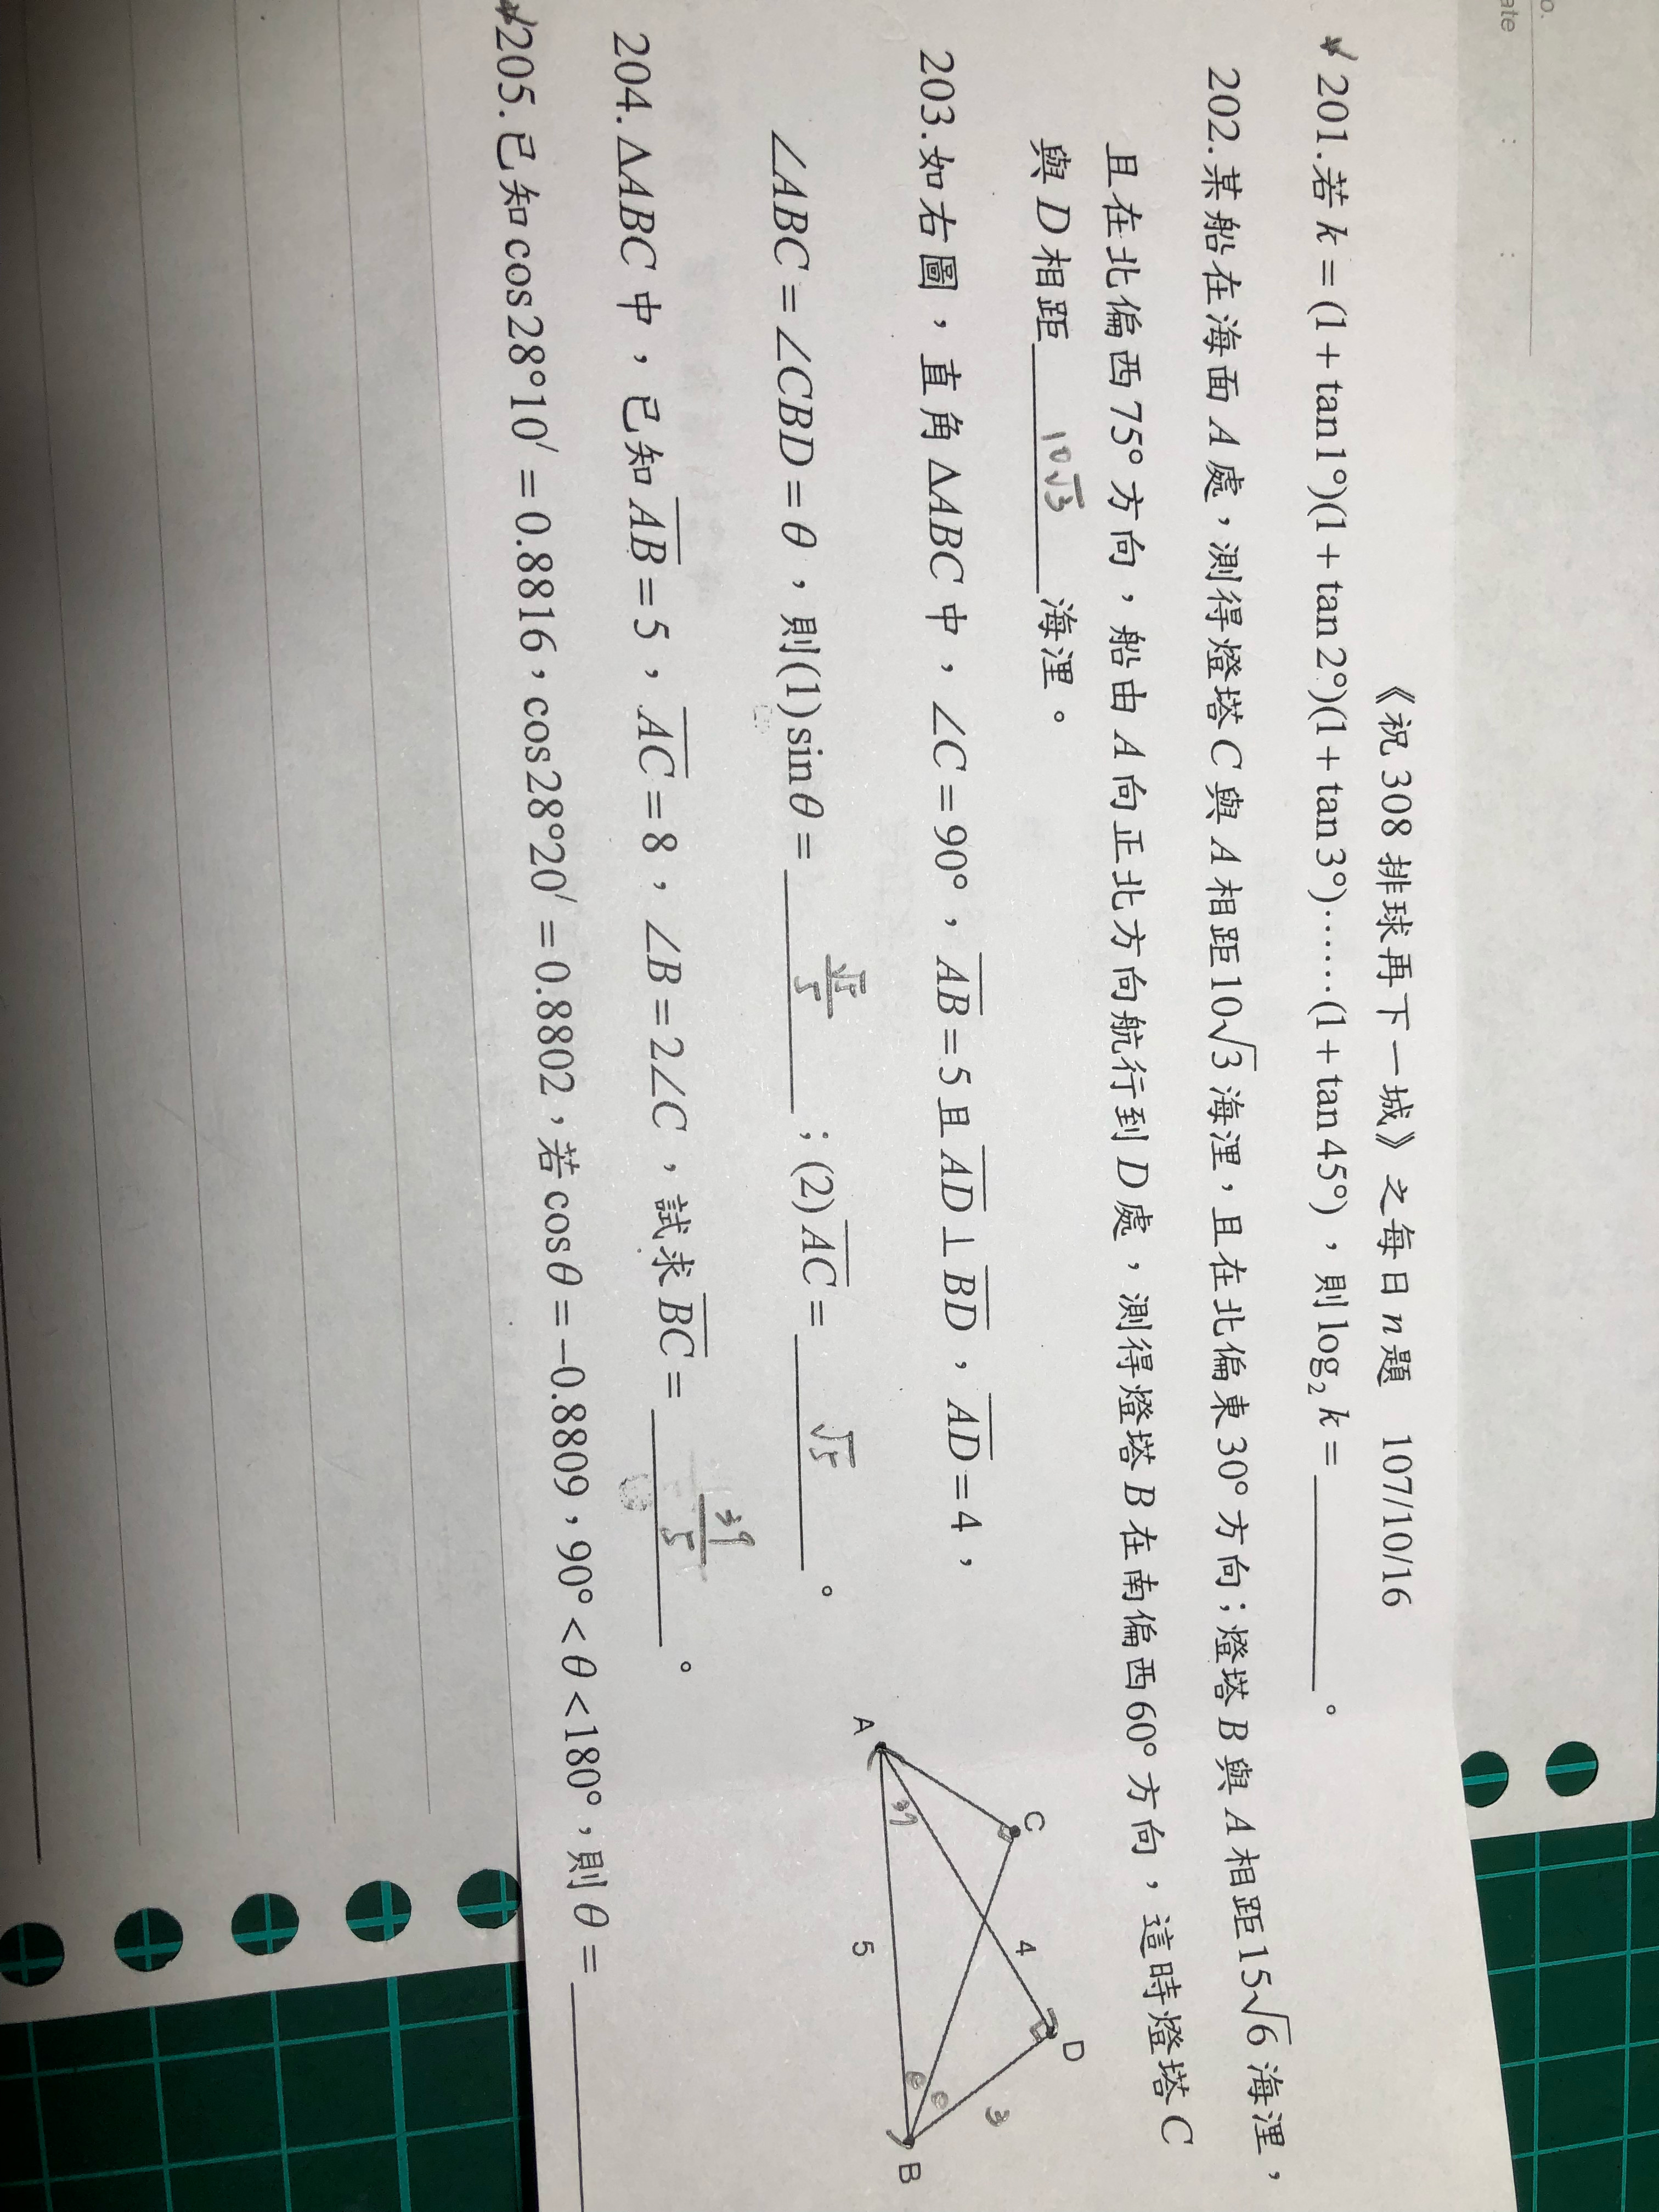 o.
ate
《祝308排球再下一城》之每日n題 107/10/16
201.若k=(1+tan1°)(1+tan2°)(1+tan3°)……(1+tan45°),則log₂k=________。
202.某船在海面A處,測得燈塔C與A相距10√3海浬,且在北偏東30°方向;燈塔B與A相距15√6海浬,
且在北偏西75°方向,船由A向正北方向航行到D處,測得燈塔B在南偏西60°方向,這時燈塔C
與D相距 10√3 海浬。
203.如右圖,直角△ABC中,∠C=90°,A̅B̅=5且A̅D̅⊥B̅D̅,A̅D̅=4,
∠ABC=∠CBD=θ,則(1)sinθ= √5/5 ;(2)A̅C̅= √5 。
A
C
D
B
4
5
37
3
θ
θ
204.△ABC中,已知A̅B̅=5,A̅C̅=8,∠B=2∠C,試求B̅C̅= 39/5 。
205.已知cos28°10′=0.8816,cos28°20′=0.8802,若cosθ=−0.8809,90°<θ<180°,則θ=________